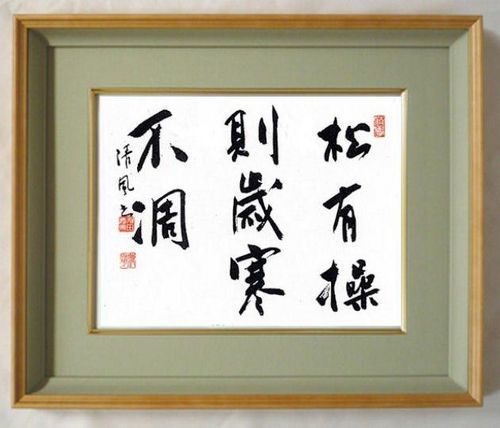 松有操
則歳寒
不凋
清風